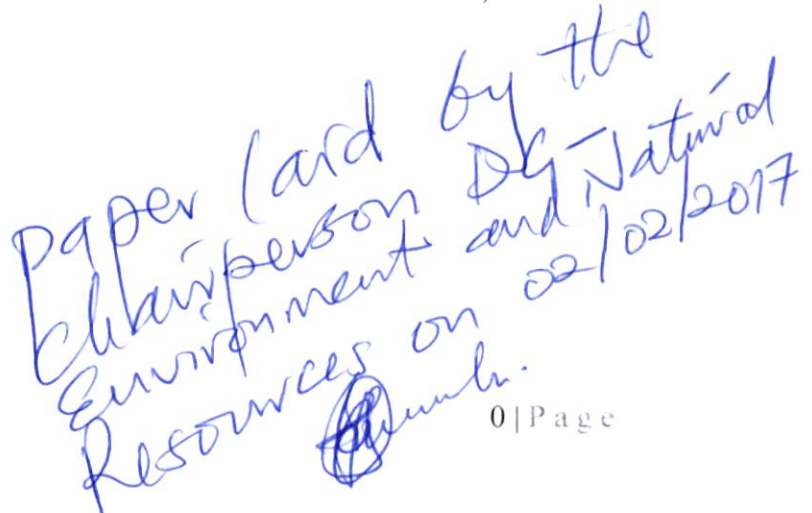 paper laid by the
Chairperson DC-
Environment and Natural
Resources on 02/02/2017
0|Page